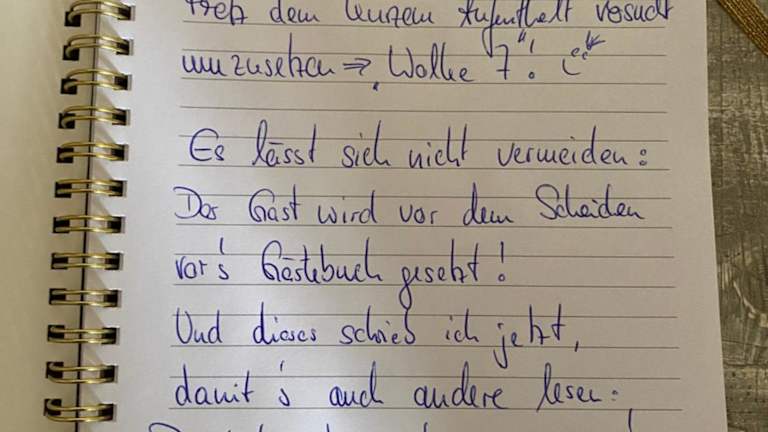 trotz dem kurzem Aufenthalt versucht
umzusetzen ⇒ „Wolke 7"!
Es lässt sich nicht vermeiden:
Der Gast wird vor dem Scheiden
vor's Gästebuch gesetzt!
Und dieses schrieb ich jetzt,
damit's auch andere lesen: